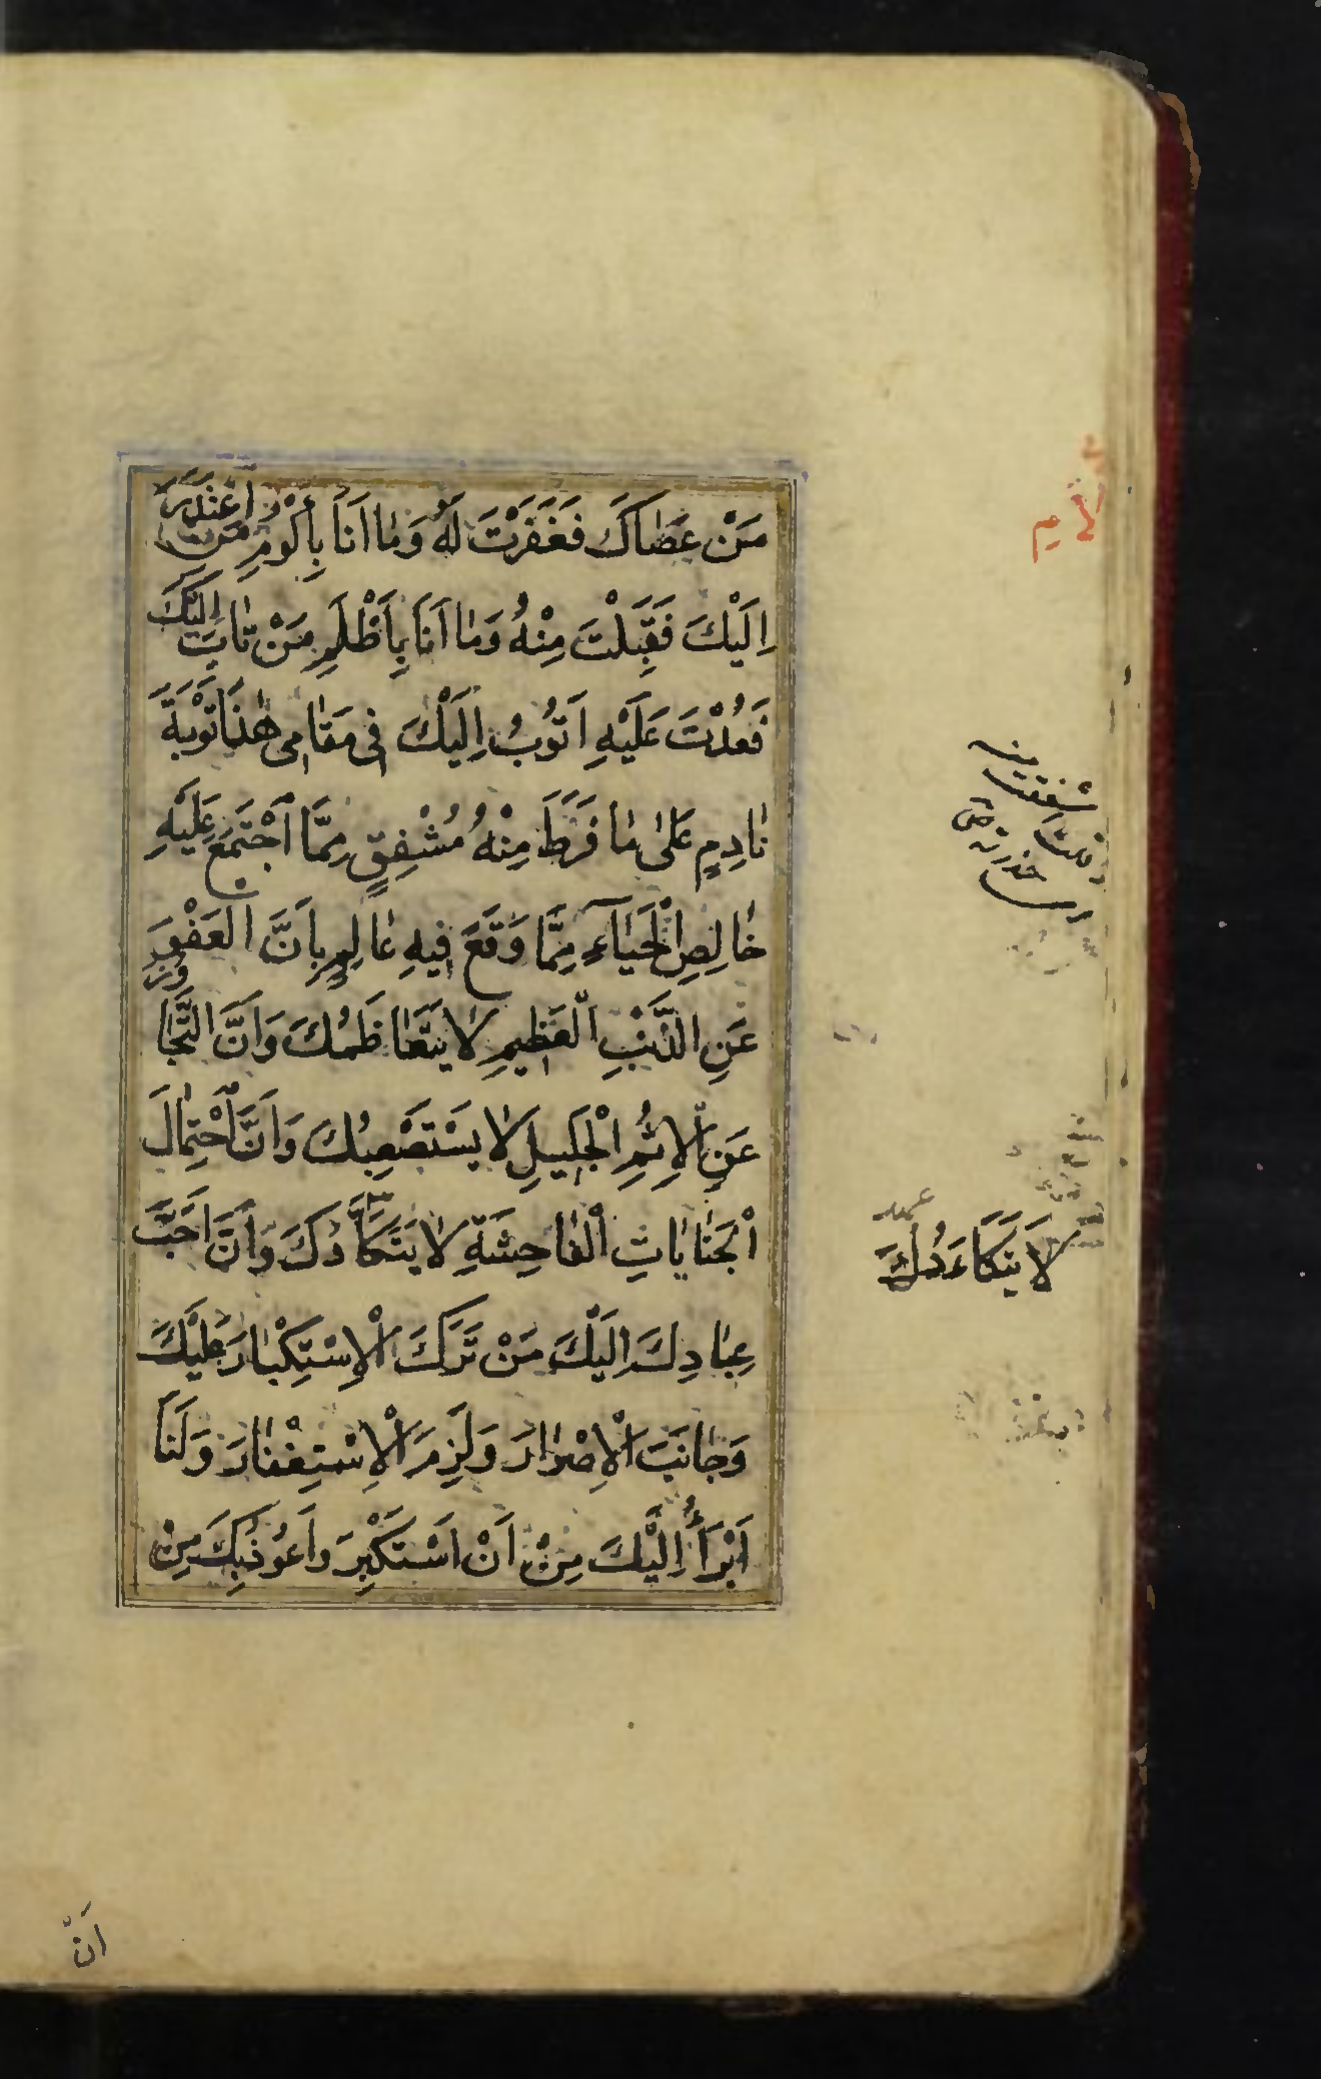 مَنْ عَصَاكَ فَغَفَرْتَ لَهُ وَمَا اَنَا بِاَلْوَمِ مَنِ اعْتَذَرَ
اِلَيْكَ فَقَبِلْتَ مِنْهُ وَمَا اَنَا بِاَظْلَمِ مَنْ تَابَ اِلَيْكَ
فَعُدْتَ عَلَيْهِ اَتُوبُ اِلَيْكَ فِى مَقَامِى هٰذَا تَوْبَةَ
نَادِمٍ عَلٰى مَا فَرَطَ مِنْهُ مُشْفِقٍ مِمَّا اجْتَمَعَ عَلَيْهِ
خَالِصِ الْحَيَآءِ مِمَّا وَقَعَ فِيهِ عَالِمٍ بِاَنَّ الْعَفْوَ
عَنِ الذَّنْبِ الْعَظِيمِ لَا يَتَعَاظَمُكَ وَاَنَّ التَّجَاوُزَ
عَنِ الْاِثْمِ الْجَلِيلِ لَا يَسْتَصْعِبُكَ وَاَنَّ احْتِمَالَ
الْجَنَايَاتِ الْفَاحِشَةِ لَا يَتَكَأَّدُكَ وَاَنَّ اَحَبَّ
عِبَادِكَ اِلَيْكَ مَنْ تَرَكَ الْاِسْتِكْبَارَ عَلَيْكَ
وَجَانَبَ الْاِصْرَارَ وَلَزِمَ الْاِسْتِغْفَارَ وَاَنَا
اَبْرَأُ اِلَيْكَ مِنْ اَنْ اَسْتَكْبِرَ وَاَعُوذُ بِكَ مِنْ
لَا يَتَكَاءَدُكَ
اَنْ